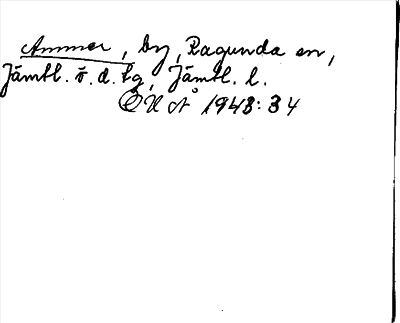 Ammer, by, Ragunda sn,
Jämtl. ö. d. tg, Jämtl. l.
OUÅ 1943:34